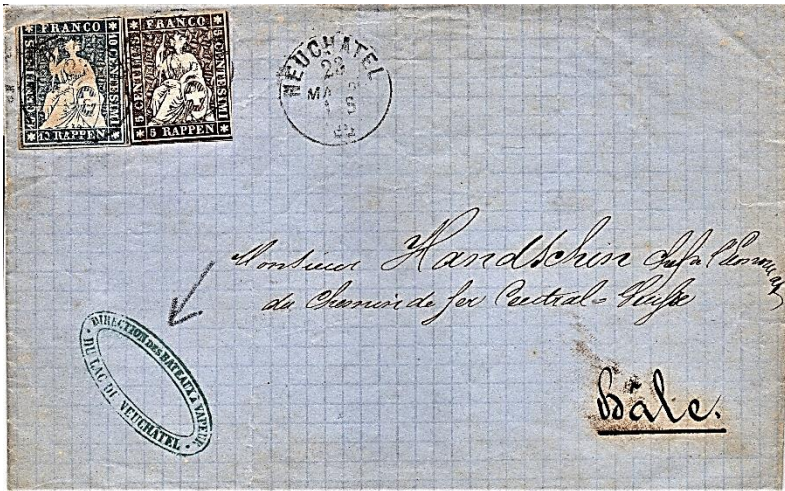 FRANCO
10 CENTIMES
10 CENTESIMI
10 RAPPEN
FRANCO
5 CENTIMES
5 CENTESIMI
5 RAPPEN
NEUCHATEL
23
Monsieur Handschin
du Chemin de fer Central-Suisse
Bâle.
DIRECTION DES BATEAUX A VAPEUR
DU LAC DE NEUCHÂTEL